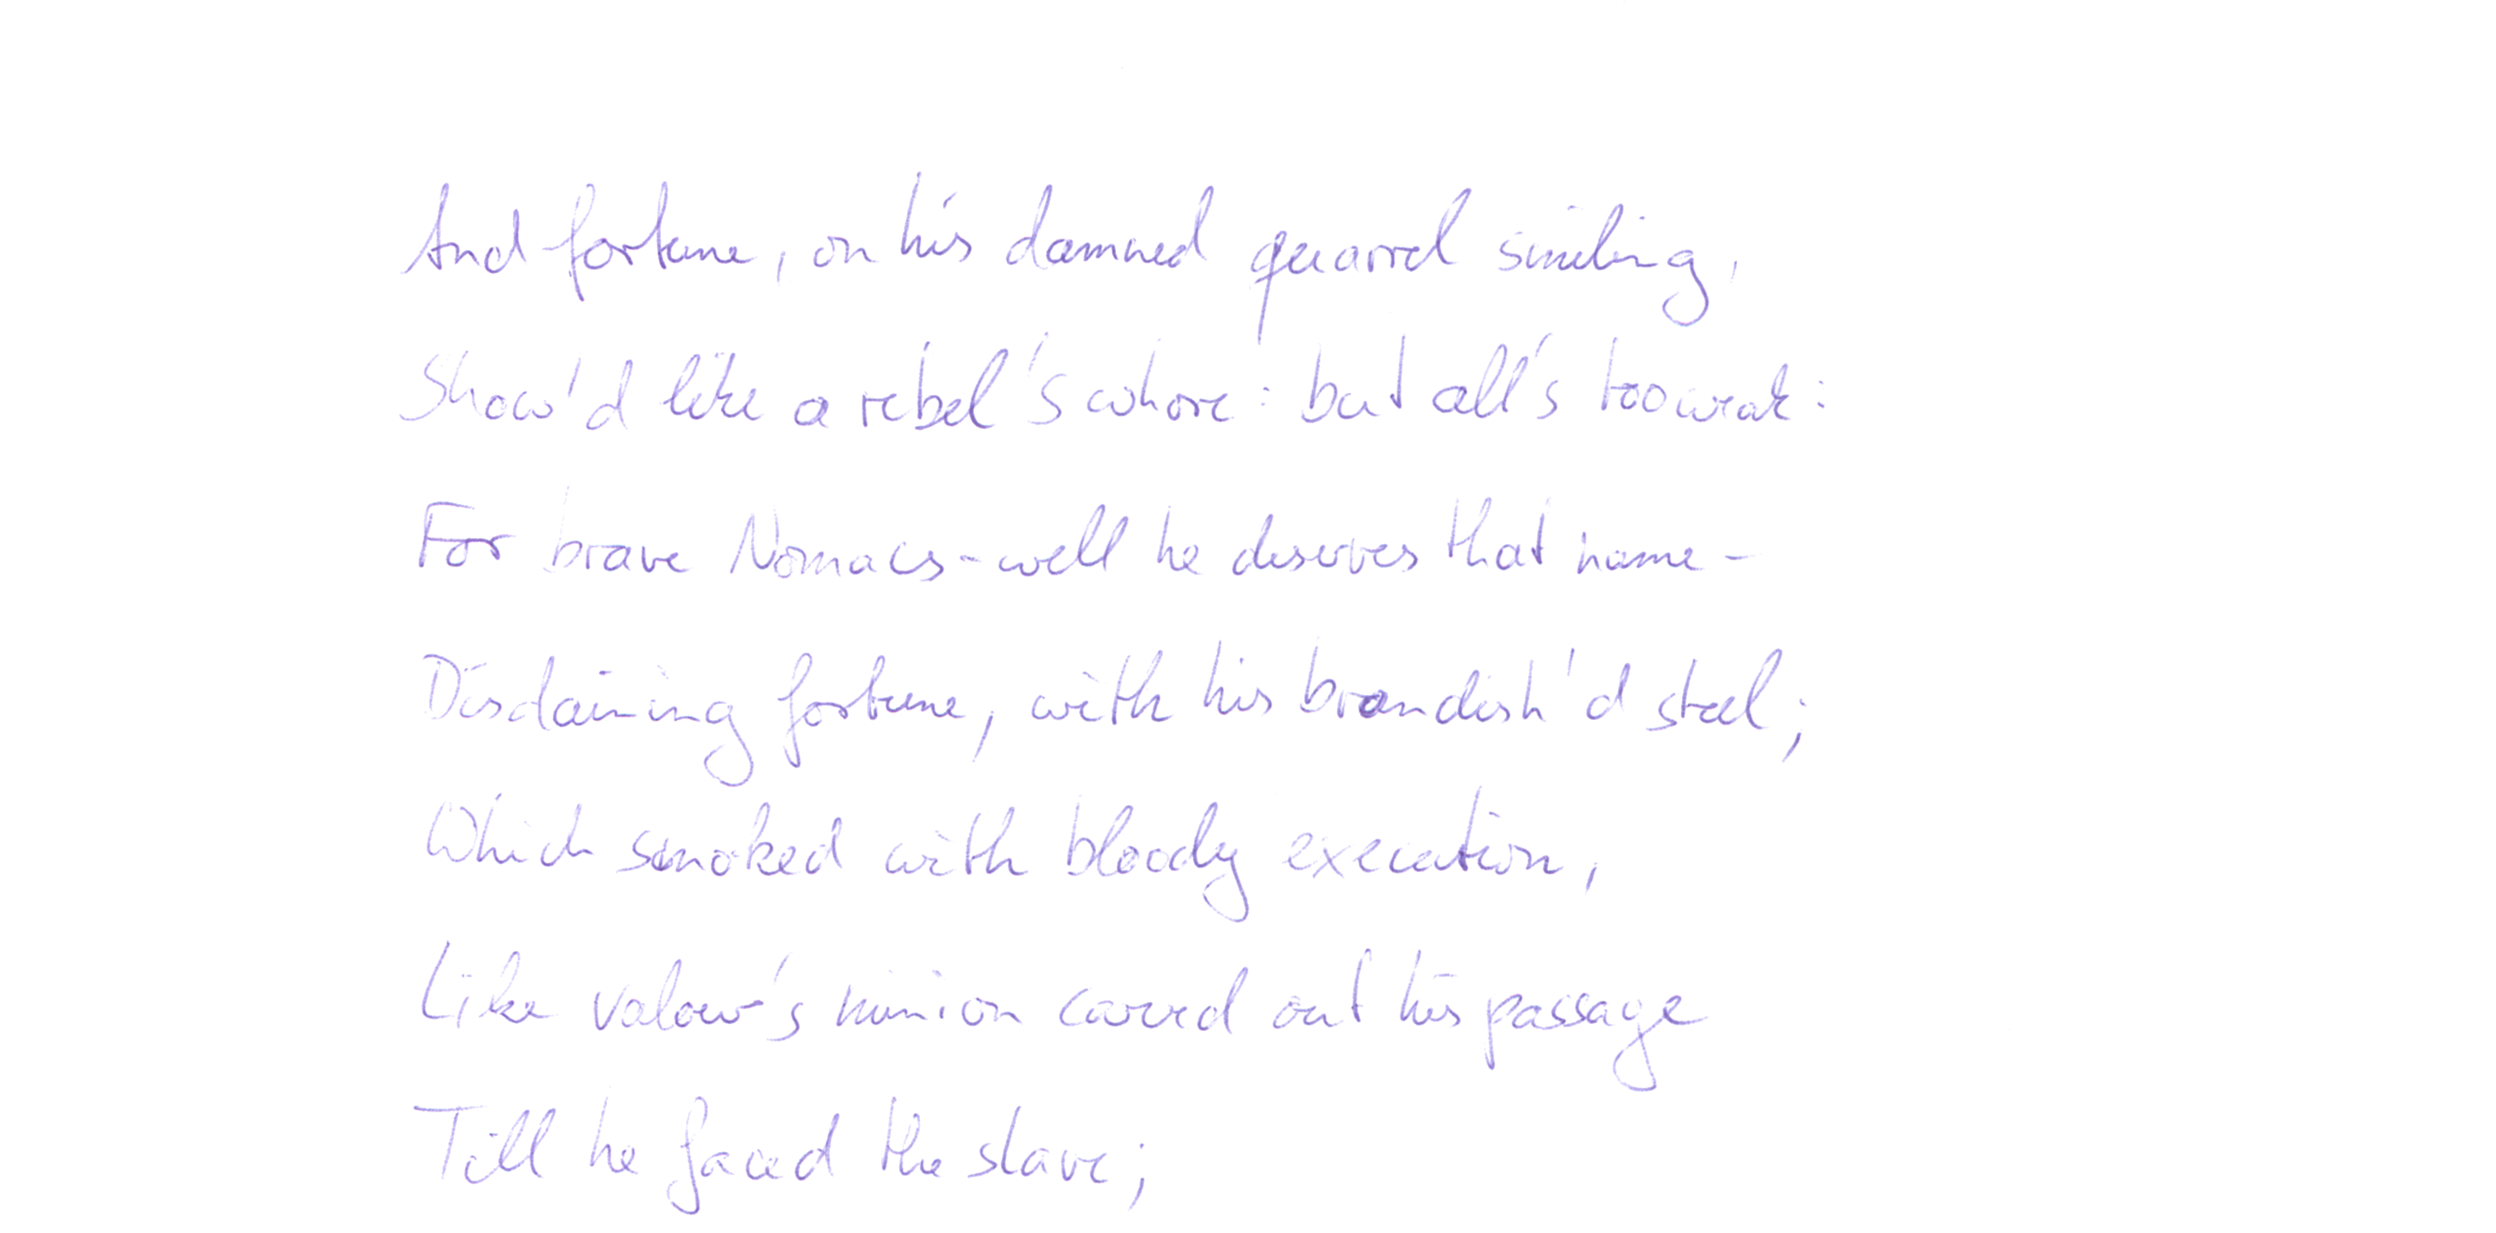 And fortune, on his damned quarrel smiling,
Show'd like a rebel's whore: but all's too weak:
For brave Nomacs - well he deserves that name -
Disdaining fortune, with his brandish'd steel;
Which smoked with bloody execution,
Like valour's minion carved out his passage
Till he faced the slave;